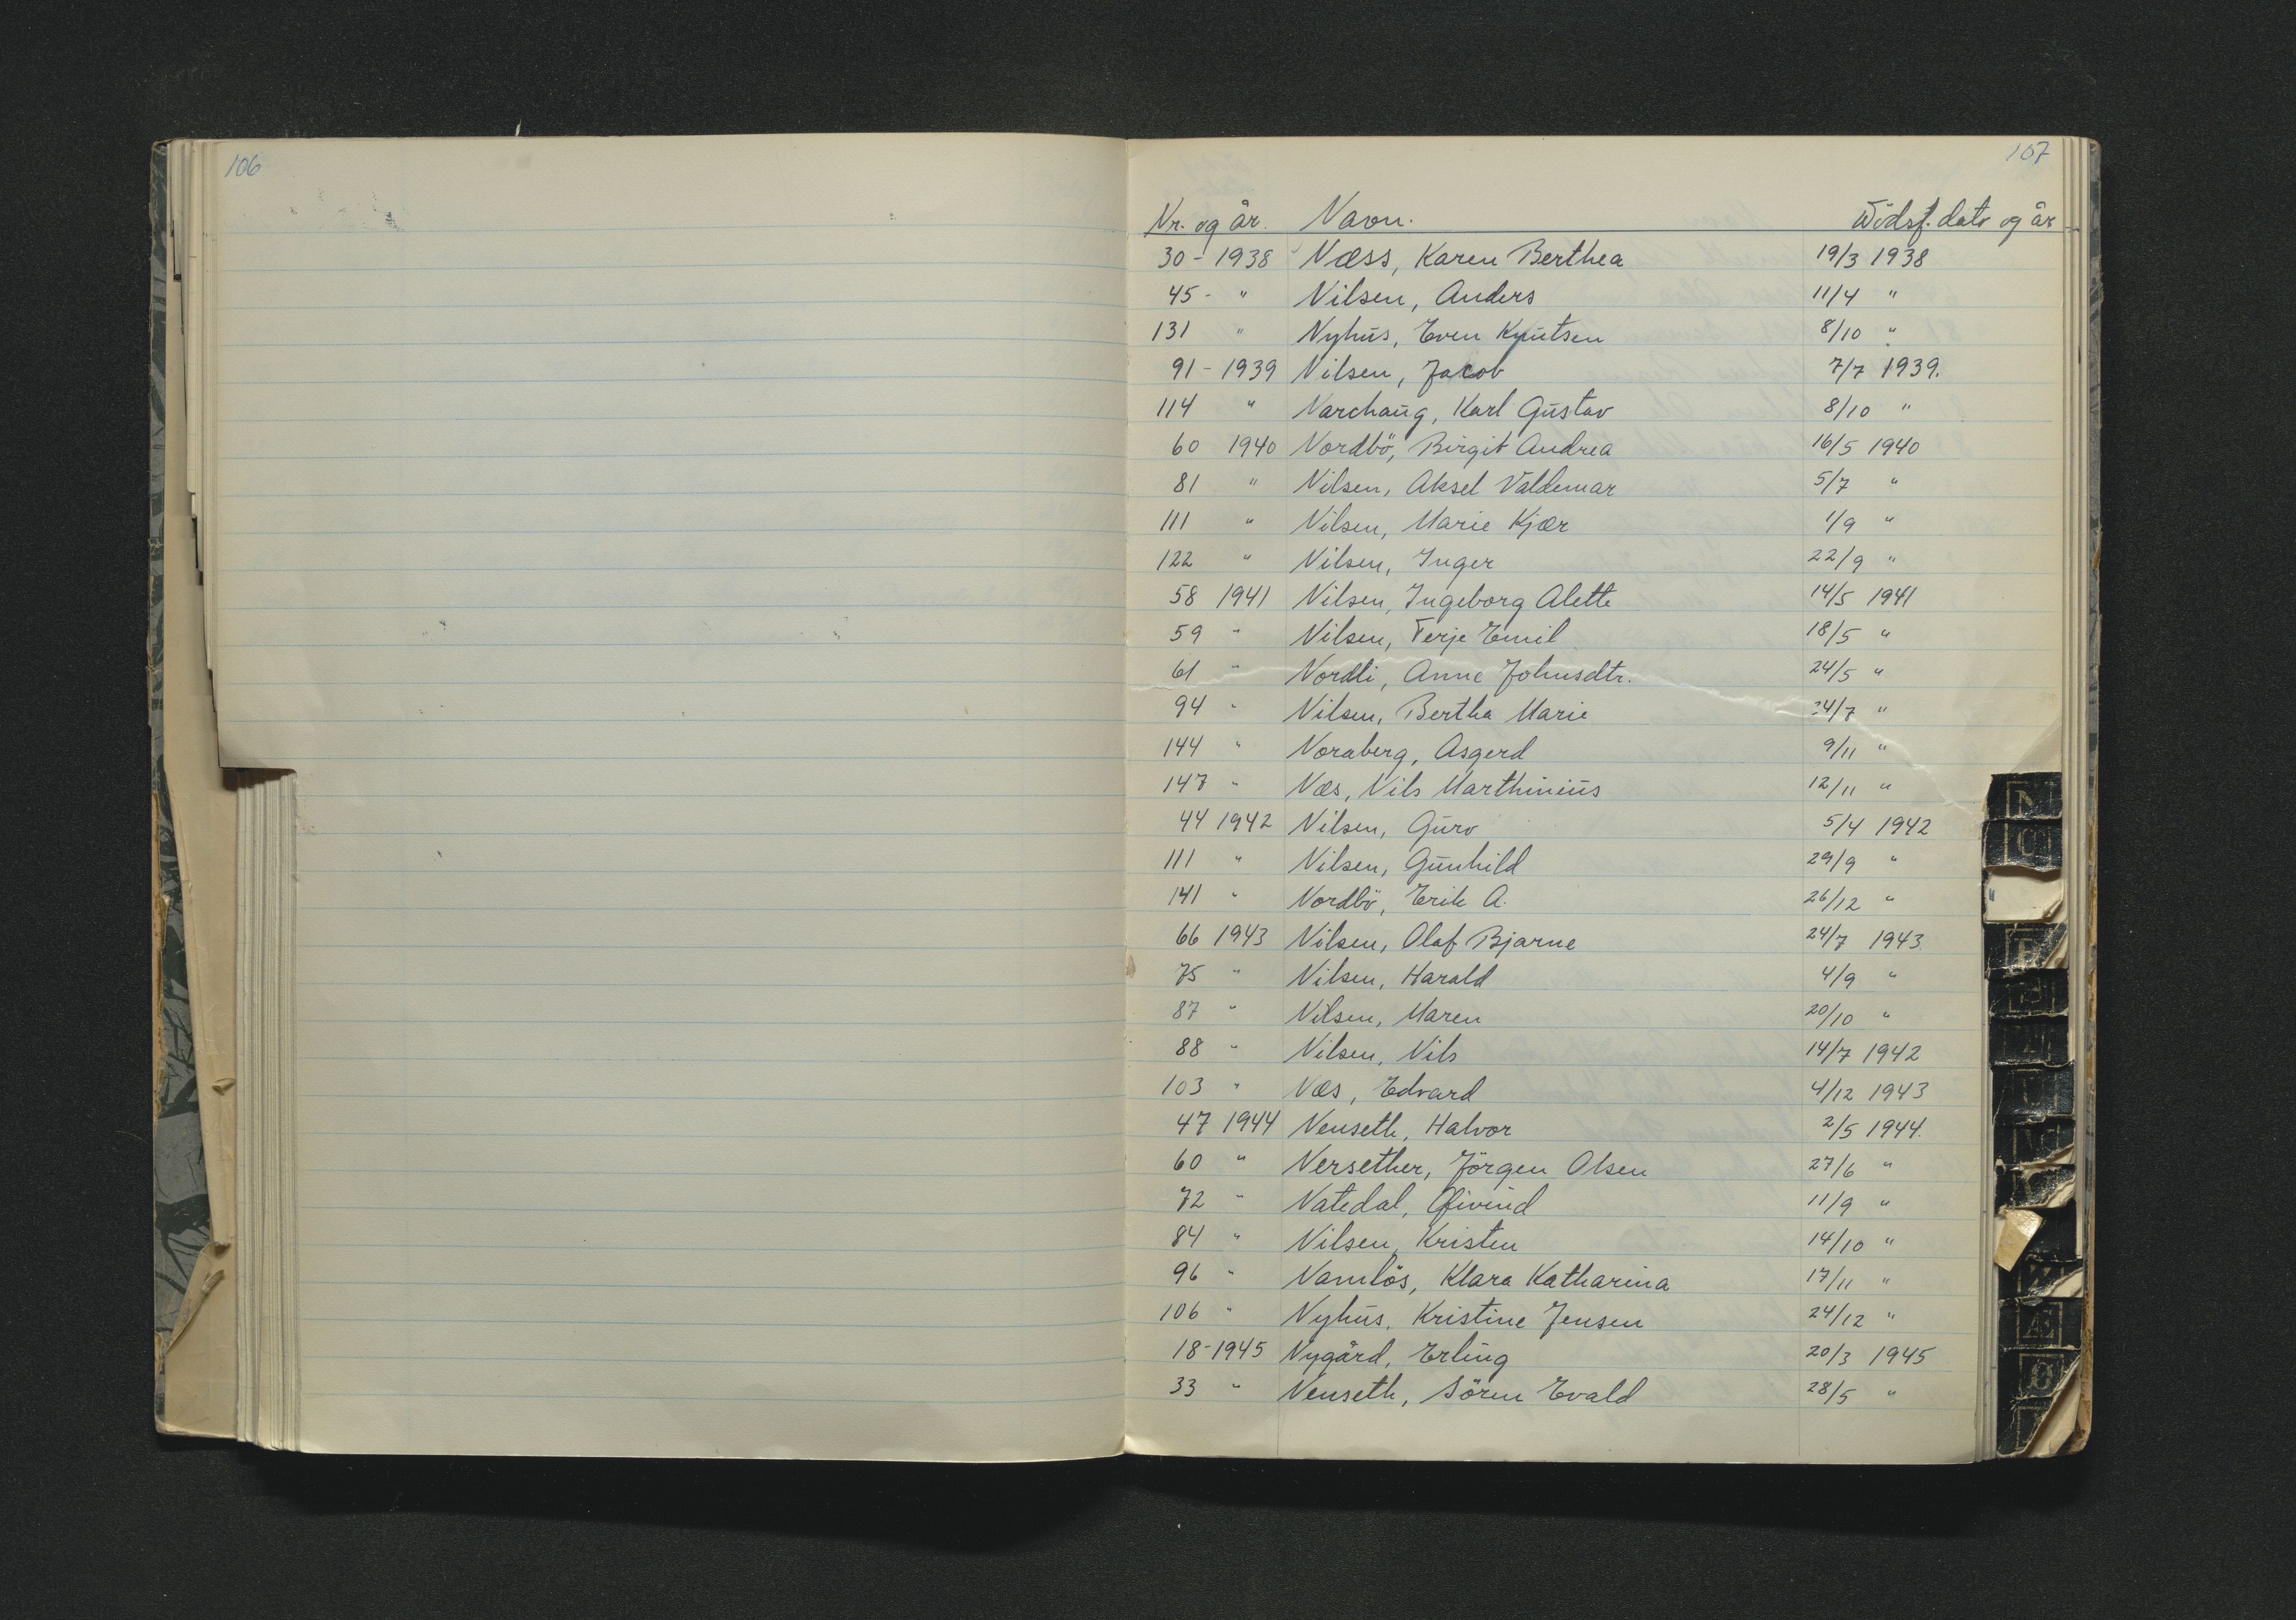 106
107
Nr. og år. Navn. Dödsf. dato og år
30 - 1938 Næss, Karen Berthea 19/3 1938
45 - " Nilsen, Anders 11/4 "
131 " Nyhus, Even Knutsen 8/10 "
91 - 1939 Nilsen, Jacob 7/7 1939.
114 " Narchaug, Karl Gustav 8/10 "
60 1940 Nordbö, Birgit Andrea 16/5 1940
81 " Nilsen, Aksel Valdemar 5/7 "
111 " Nilsen, Marie Kjær 1/9 "
122 " Nilsen, Inger 22/9 "
58 1941 Nilsen, Ingeborg Alette 14/5 1941
59 " Nilsen, Terje Emil 18/5 "
61 " Nordli, Anne Johnsdtr. 24/5 "
94 " Nilsen, Bertha Marie 24/7 "
144 " Noraberg, Asgerd 9/11 "
147 " Næs, Nils Marthinius 12/11 "
44 1942 Nilsen, Guro 5/4 1942
111 " Nilsen, Gunhild 29/9 "
141 " Nordbö, Erik A. 26/12 "
66 1943 Nilsen, Olaf Bjarne 24/7 1943
75 " Nilsen, Harald 4/9 "
87 " Nilsen, Maren 20/10 "
88 " Nilsen, Nils 14/7 1942
103 " Næs, Edvard 4/12 1943
47 1944 Nenseth, Halvor 2/5 1944.
60 " Nersether, Jörgen Olsen 27/6 "
72 " Natedal, Øivind 11/9 "
84 " Nilsen, Kristen 14/10 "
96 " Namlös, Klara Katharina 17/11 "
106 " Nyhus, Kristine Jensen 24/12 "
18 - 1945 Nygård, Erling 20/3 1945
33 " Nenseth, Sören Evald 28/5 "
N
Æ
Ø